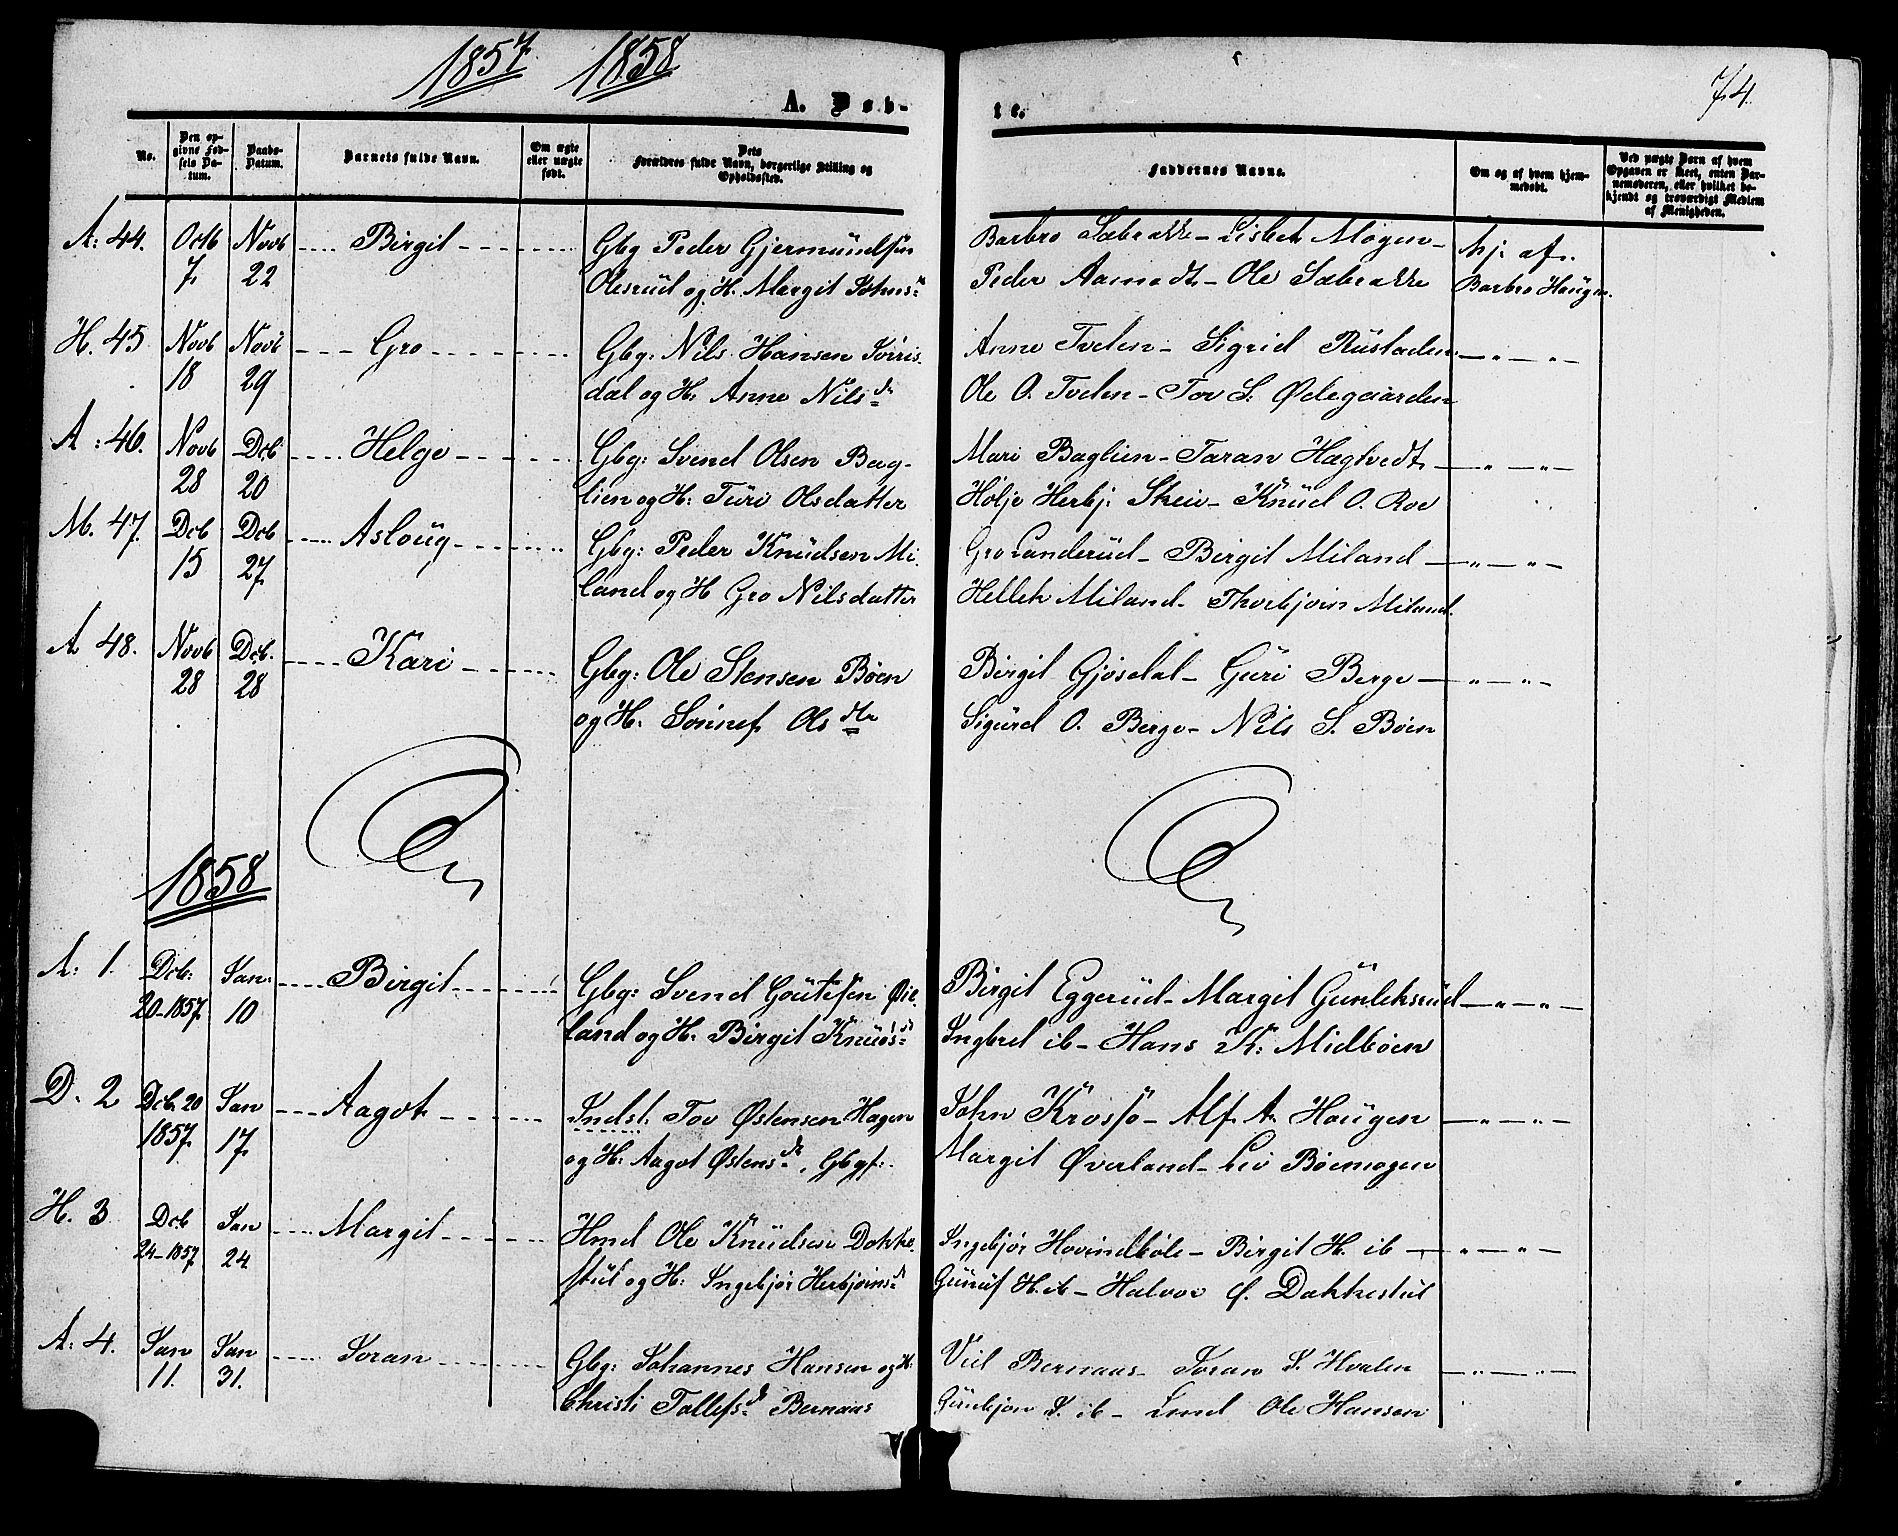 1857. 1858
74.
A. Døb-
te.
No.
Den opgivne Fødsels Datum.
Daabs-Datum.
Barnets fulde Navn.
Om ægte eller uægte født.
Dets Forældres fulde Navn, borgerlige Stilling og Opholdssted.
Faddernes Navne.
Om og af hvem hjemmedøbt.
Ved uægte Børn af hvem Opgaven er skeet, enten Barnemoderen, eller hvilket bekjendt og troværdigt Medlem af Menigheden.
A: 44. Octb 7. Novb 22 Birgit Gbg Peder Gjermundsen
Olesrud og H. Margit Johns dr
Barbro Sæbrække - Lisbet Mogen -
Peder Aamodt - Ole Sæbrække
hj. af.
Barbro Haugen.
H. 45 Novb 18 Novb 29 Gro Gbg: Nils Hansen Sørris-
dal og H. Anne Nils dr
Anne Tveten - Sigrid Rustaden - " - " -
Ole O. Tveten - Tov S. Ødegaarden
A: 46. Novb 28 Dcb 20 Helge Gbg: Svend Olsen Bag-
lien og H: Turi Olsdatter
Mari Baglien - Taran Hægtvedt - " - " -
Hølje Herbj. Skeie - Knud O. Roe
M. 47. Dcb 15 Dcb 27. Asloug Gbg: Peder Knudsen Mi-
land og H Gro Nilsdatter
Gro Landerud - Birgit Miland - " - " -
Hellek Miland - Thorbjørn Miland.
A 48. Novb 28 Dcb. 28 Kari Gbg: Ole Stensen Bøen
og H. Sønnef Ols dtr
Birgit Gjøsdal - Guri Berge - " - " -
Sigurd O. Berge - Nils S. Bøen
1858
A: 1. Dcb: 20-1857. Jan: 10 Birgit Gbg: Svend Goutesen Øie-
land og H. Birgit Knuds dr
Birgit Eggerud - Margit Gunleksrud - " - " -
Ingbret ib - Hans K: Midbøen
D. 2 Dcb. 20 1857. Jan 17. Aagot Indst. Tov Østensen Hagen
og H: Aagot Østens dr, Gbgf:
John Krossø - Alf A. Haugen - " - " -
Margit Øverland - Liv Bøemogen
H. 3 Dcb 24-1857. Jan 24 Margit Hmd Ole Knudsen Dokke-
stul og H: Ingebjør Herbjørns dr
Ingebjør Hovindbøle - Birgit H. ib - " - " -
Gunuf H. ib - Halvor Dokkestul
A: 4. Jan 11. Jan 31. Joran Gbg: Johannes Hansen og H.
Christi Tollefs dr Bernaas
Bernaas - Joran S. Hvalen - " - " -
Gunbjør S. ib - Ole Hansen